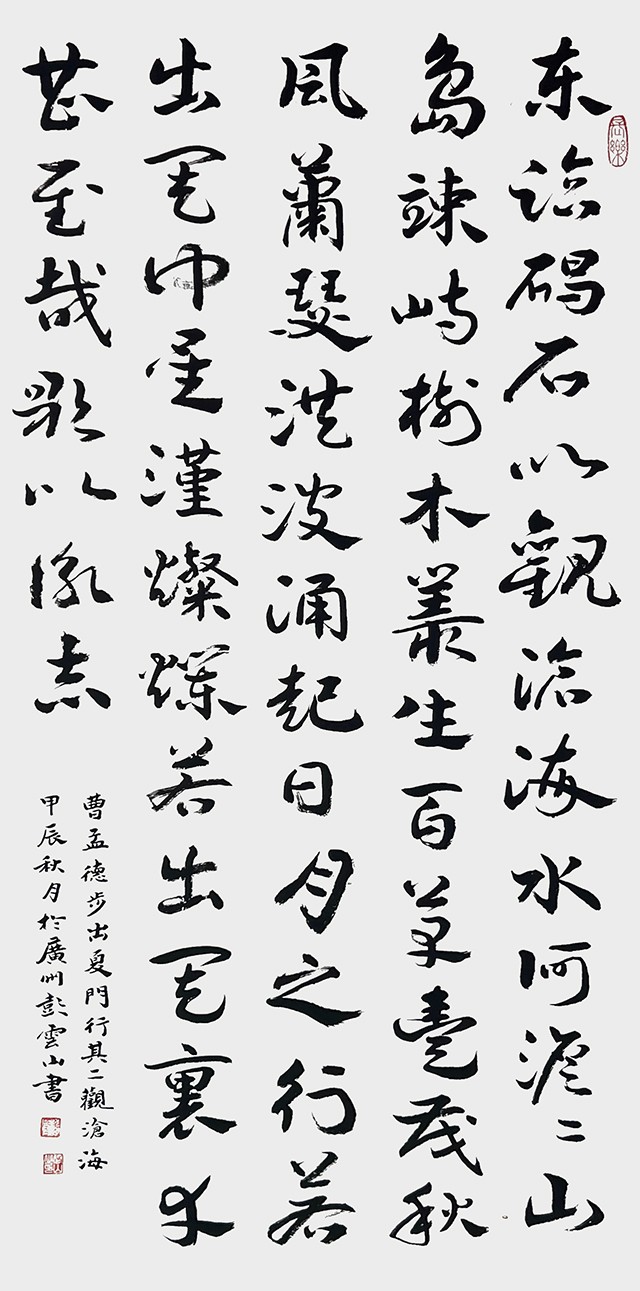 东临碣石以觀滄海水何澹々山
島竦峙樹木叢生百草豐茂秋
風蕭瑟洪波涌起日月之行若
出其中星漢燦爛若出其裏幸
甚至哉歌以詠志
曹孟德步出夏門行其二觀滄海
甲辰秋月於廣州彭雲山書